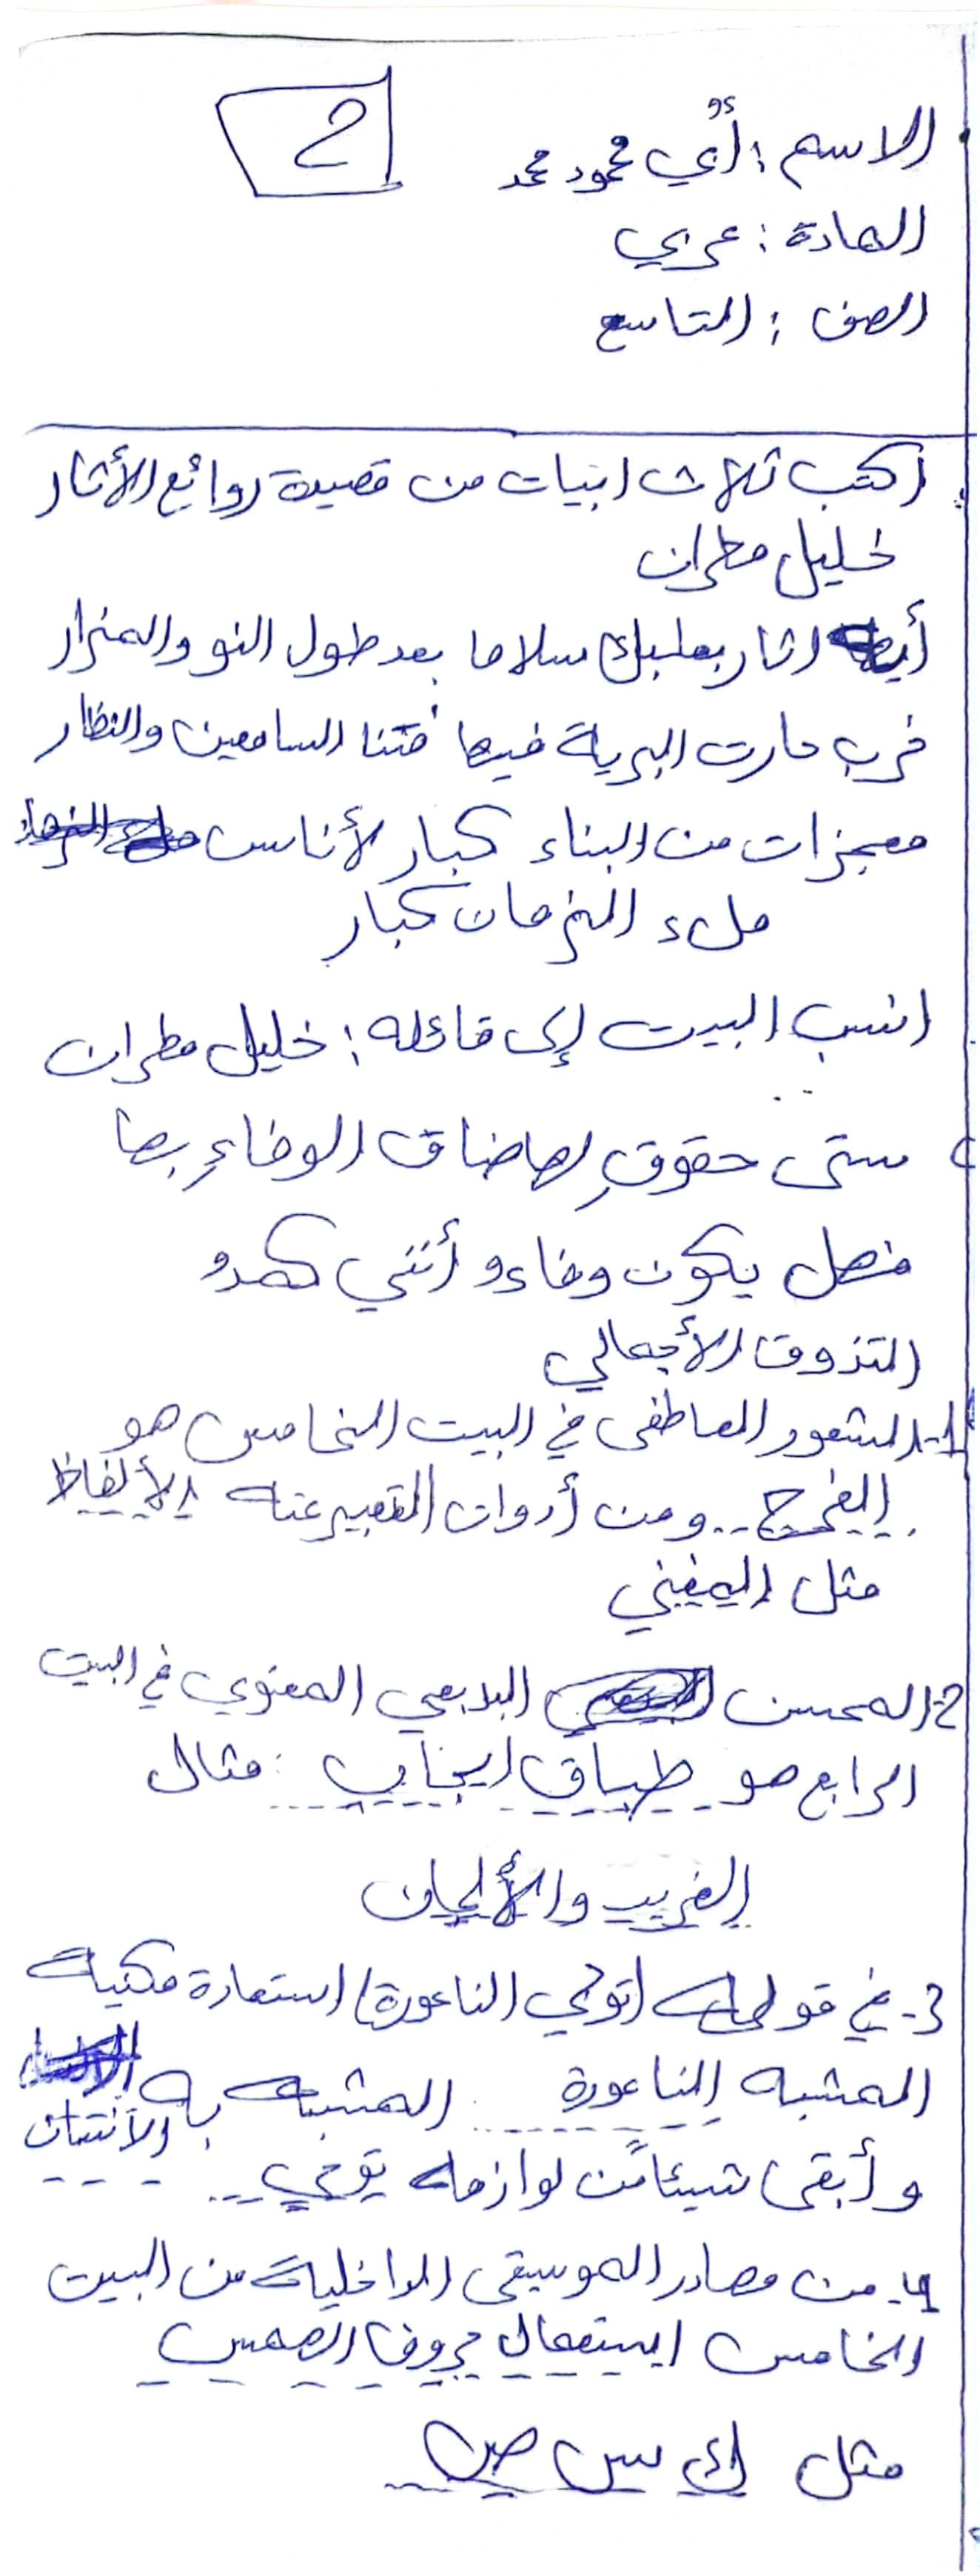 2
الاسم : أُبي محمود محمد
المادة : عربي
الصف : التاسع
اكتب ثلاث ابيات من قصيدة روائع الأثار
خليل مطران
اثار بعلبك سلاما بعد طول النو والمزار
خرب حارت البرية فيها فتنا السامعين والنظار
معجزات من البناء كبار لأناس
ملء الزمان كبار
انسب البيت إلى قائله : خليل مطران
ستى حقوقِ لها ضاق الوفاءِ بها
فهل يكون وفاءو أنني كمدو
التذوق الأجمالي
1-الشعور العاطفي في البيت الخامس هو
الفرح .. ومن أدوات التعبير عنه الألفاظ
مثل المغني
2-المحسن البديعي المعنوي في البيت
الرابع هو طباق ايجاب : مثال
الغريب والألحان
3- في قوله (توحي الناعورة) استعارة مكنية
المشبه الناعورة المشبه به
الانسان
وأبقى شيئاً من لوازمه توحي ..
4- من مصادر الموسيقى الداخلية من البيت
الخامس استعمال حروف الهمس
مثل ك س ص